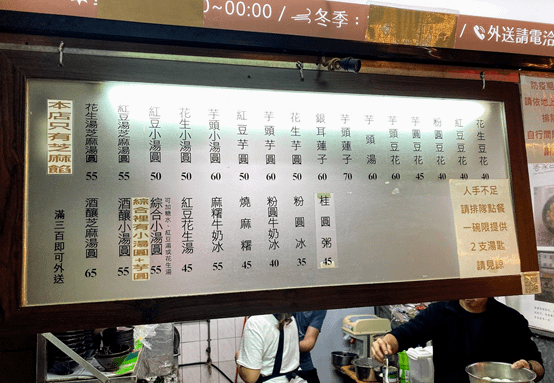 ~00:00 / 冬季：
/ 外送請電洽
花生豆花 40
紅豆豆花 40
粉圓豆花 40
芋圓豆花 45
芋頭豆花 60
芋頭湯 60
芋頭蓮子 70
銀耳蓮子 60
花生芋圓 50
芋頭芋圓 60
紅豆芋圓 50
芋頭小湯圓 60
花生小湯圓 50
紅豆小湯圓 50
紅豆湯芝麻湯圓 55
花生湯芝麻湯圓 55
本店只有芝麻餡
桂圓粥 45
粉圓冰 35
粉圓牛奶冰 40
燒麻糬 45
麻糬牛奶冰 55
紅豆花生湯 45
可加糖水、紅豆湯或花生湯
綜合小湯圓 55
綜合裡有小湯圓+芋圓
酒釀小湯圓 55
酒釀芝麻湯圓 65
滿三百即可外送
人手不足
請排隊點餐
一碗限提供
2支湯匙
請見諒